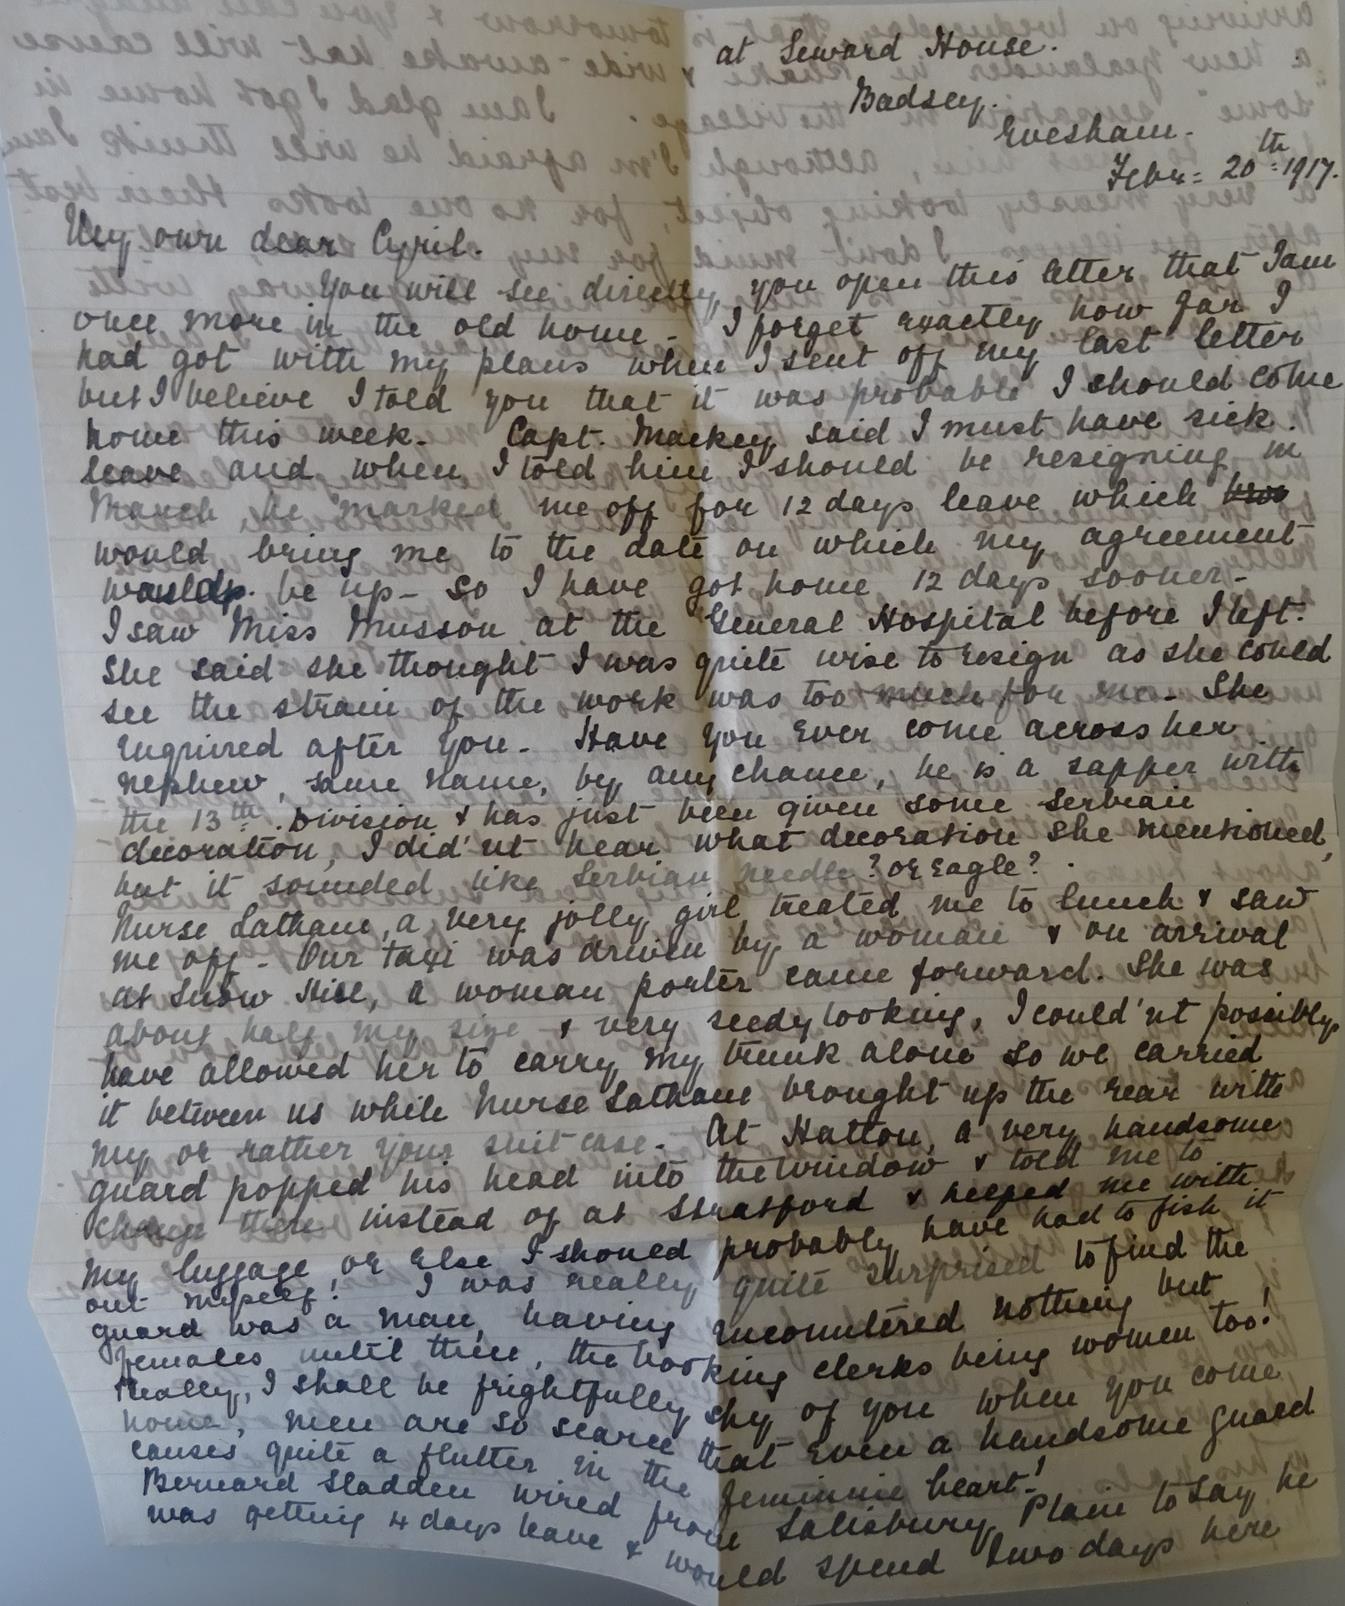 at Seward House.
Badsey.
Evesham.
Feby: 20th: 1917.
My own dear Cyril.
You will see directly you open this letter that I am
once more in the old home - I forget exactly how far I
had got with my plans when I sent off my last letter
but I believe I told you that it was probable I should come
home this week. Capt. Mackey said I must have sick
leave and when I told him I should be resigning in
March he marked me off for 12 days leave which
would bring me to the date on which my agreement
would be up - so I have got home 12 days sooner -
I saw Miss Musson at the General Hospital before I left.
She said she thought I was quite wise to resign as she could
see the strain of the work was too much for me - She
enquired after you - Have you ever come across her
nephew, same name, by any chance, he is a sapper with
the 13th Division & has just been given some Serbian
decoration, I did'nt hear what decoration she mentioned,
but it sounded like Serbian needle? or Eagle?
Nurse Latham, a very jolly girl, treated me to lunch & saw
me off - Our taxi was driven by a woman & on arrival
at Snow Hill, a woman porter came forward. She was
about half my size & very seedy looking, I could'nt possibly
have allowed her to carry my trunk alone so we carried
it between us while Nurse Latham brought up the rear with
my or rather your suit case - At Hatton, a very handsome
guard popped his head into the window & told me to
change there instead of at Stratford & helped me with
my luggage, or else I should probably have had to fish it
out myself! I was really quite surprised to find the
guard was a man, having encountered nothing but
females until then, the booking clerks being women too!
Really, I shall be frightfully shy of you when you come
home, men are so scarce that even a handsome guard
causes quite a flutter in the feminine heart!
Bernard Sladden wired from Salisbury Plain to say he
was getting 4 days leave & would spend two days here